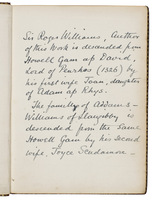 Sir Roger Williams, Author
of this Work is descended from
Howell Gam ap David,
Lord of Penrhos (1326) by
his first wife Joan, daughter
of Adam ap Rhys.
The family of Addams-
Williams of Llangibby is
descended from the same
Howell Gam by his second
wife, Joyce Scudamore.